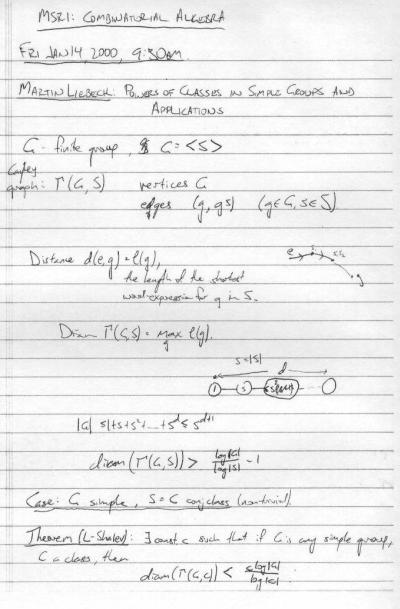 MSRI: COMBINATORIAL ALGEBRA
FRI JAN 14 2000, 9:30am.
MARTIN LIEBECK: POWERS OF CLASSES IN SIMPLE GROUPS AND
APPLICATIONS
G - finite group, G = <S>
Cayley
graph: Γ(G, S) vertices G
edges (g, gs) (g∈G, s∈S)
Distance d(e,g) = l(g),
the length of the shortest
word expression for g in S.
e
g
Diam Γ(G,S) = max l(g).
g
s = |S|
d
1 S
|G| ≤ 1+s+s²+...+s^d ≤ s^{d+1}
diam(Γ(G,S)) > log|G| / log|S| - 1
Case: G simple, S = C conj class (nontrivial).
Theorem (L-Shalev): ∃ const c such that if G is any simple group,
C a class, then
diam(Γ(G,C)) < c log|G| / log|C| .